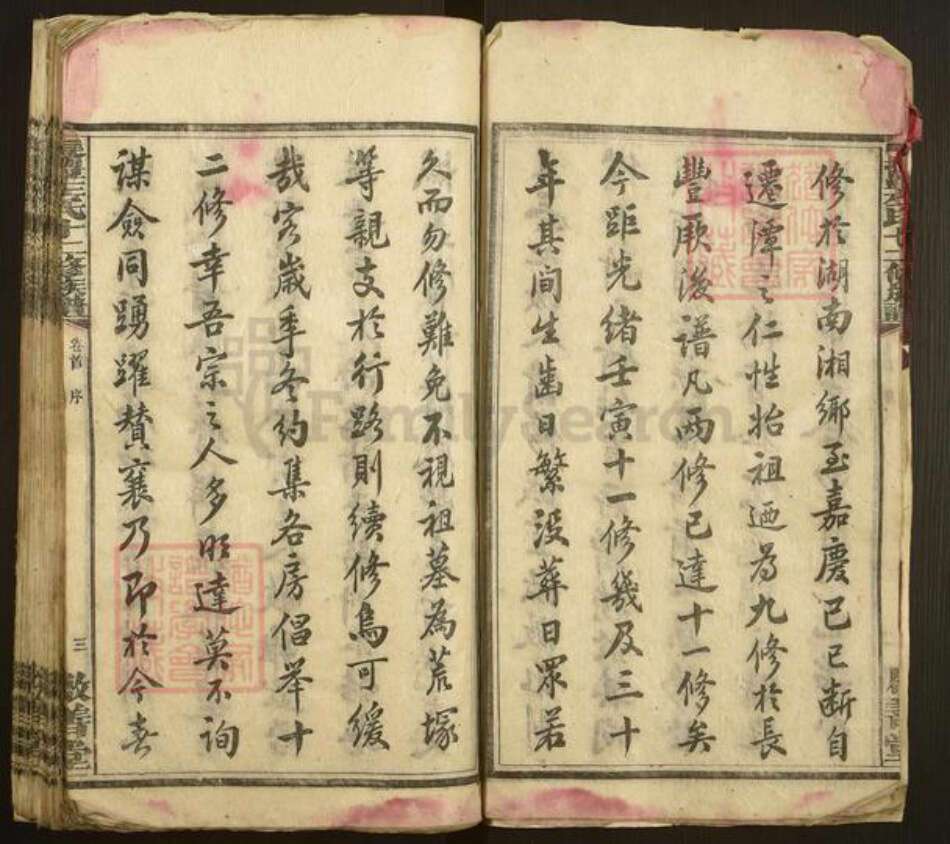 修於湖南湘鄉至嘉慶己巳斷自
遷潭之仁性抬祖迺為九修於長
豐厥後譜凡兩修已達十一修矣
今距光緒壬寅十一修幾及三十
年其間生齒日繁沒葬日眾若
久而勿修難免不視祖墓為荒塚
等親支於行路則續修烏可緩
哉客歲季冬約集各房倡舉十
二修幸吾宗之人多明達莫不詢
謀僉同踴躍贊襄乃即於今春
氏十二修族譜
卷首 序
三
敦善堂
FamilySearch